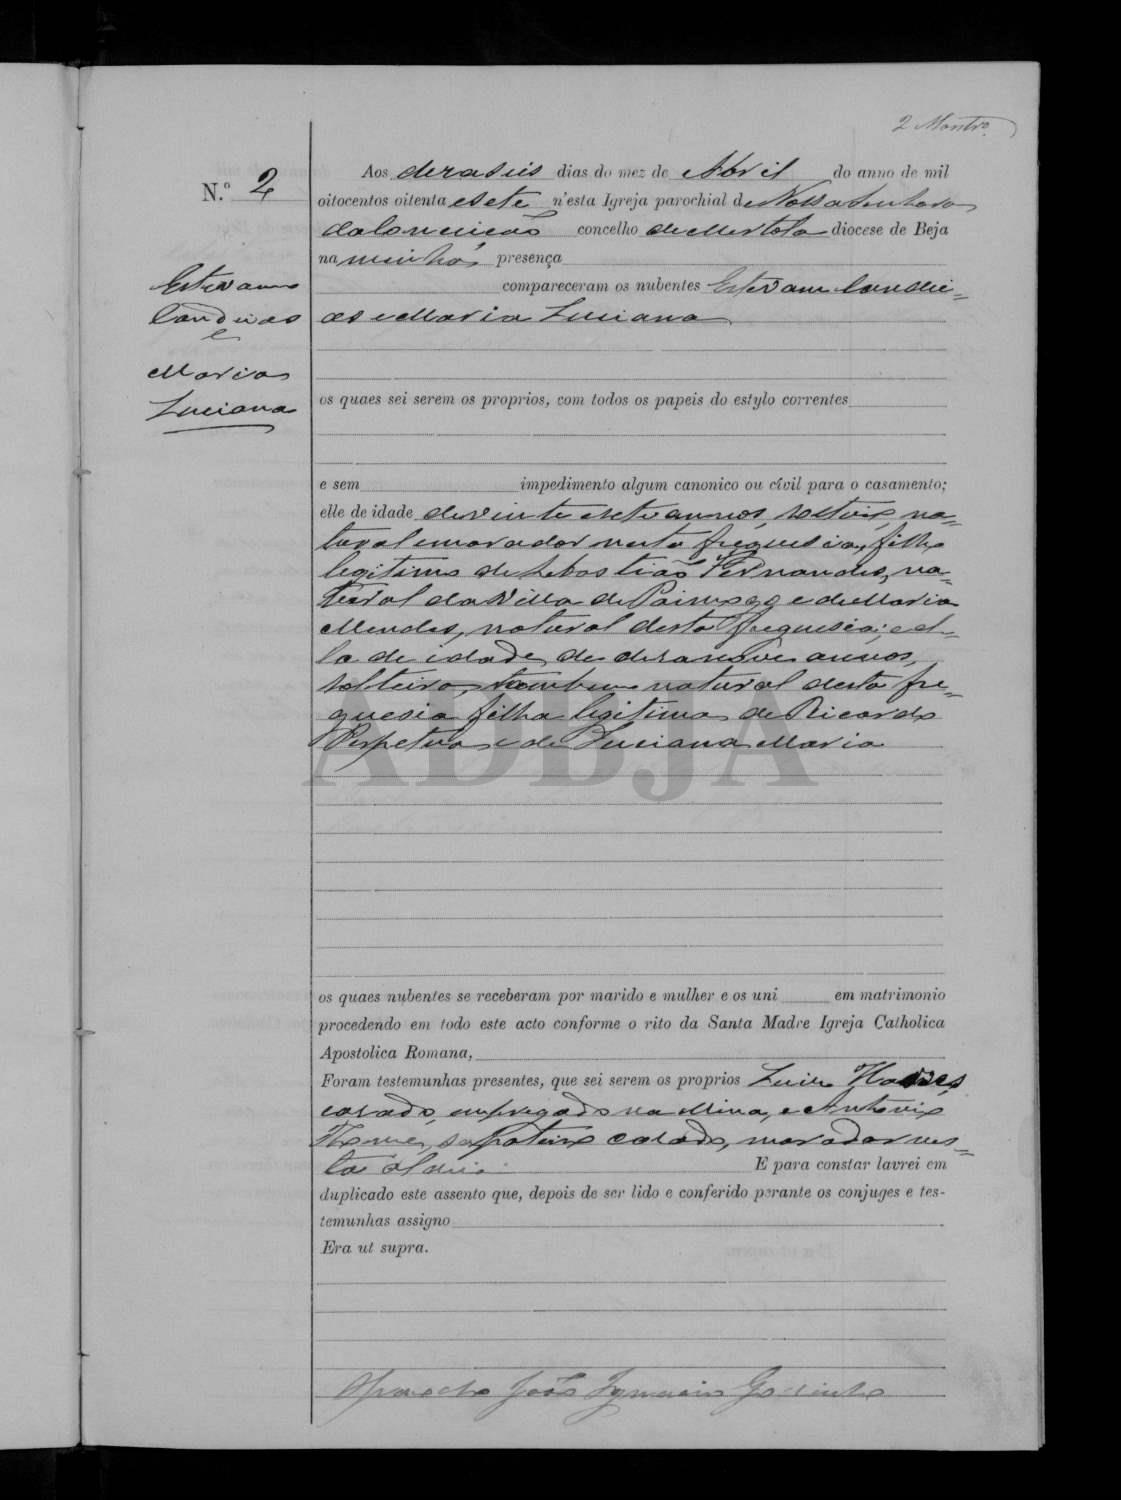 2
N.º 2
Aos deraseis dias do mez de Abril do anno de mil
oitocentos oitenta e sete n'esta Igreja parochial de Nossa Senhora
da Conceicão concelho de Mertola diocese de Beja
na minha presença
compareceram os nubentes Estevam Candei=
as e Maria Luciana
Estevam
Candeias
e
Maria
Luciana
os quaes sei serem os proprios, com todos os papeis do estylo correntes
e sem impedimento algum canonico ou civil para o casamento;
elle de idade de vinte e sete annos, solteiro, na=
tural e morador nesta freguesia, filho
legitimo de Sebastião Fernandes, na=
tural da Villa de e de Maria
Mendes, natural desta freguesia; e el=
la de idade de desanove annos,
solteira, tambem natural desta fre=
guesia filha legitima de Ricardo
Perpetua e de Luciana Maria
ADBJA
os quaes nubentes se receberam por marido e mulher e os uni em matrimonio
procedendo em todo este acto conforme o rito da Santa Madre Igreja Catholica
Apostolica Romana,
Foram testemunhas presentes, que sei serem os proprios
casado, empregado na Mina, e Antonio
sapateiro casado, morador nes=
ta aldeia E para constar lavrei em
duplicado este assento que, depois de ser lido e conferido perante os conjuges e tes-
temunhas assigno
Era ut supra.
O Parocho João Ignacio